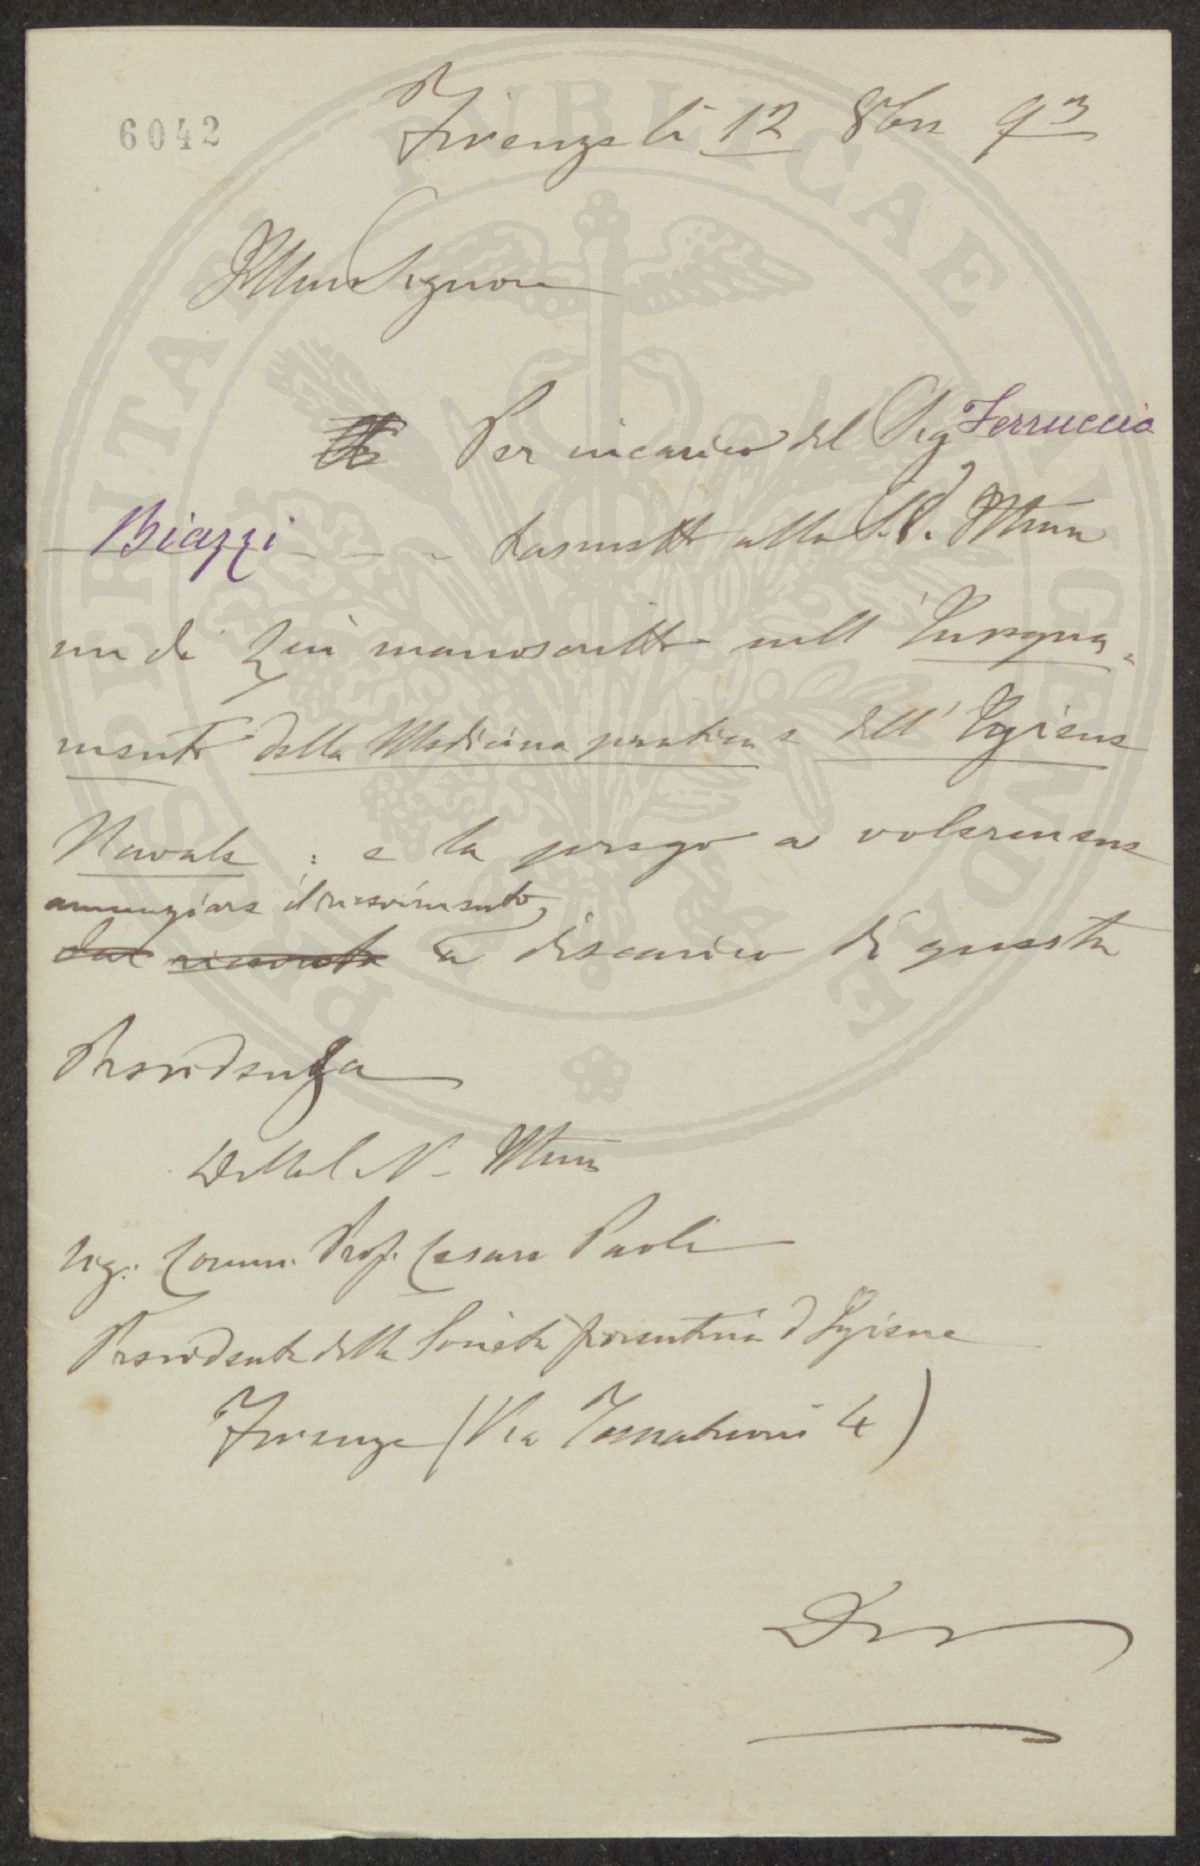 6042
Firenze li 12 8bre 93
Illmo Signore
Per incarico del Sig Ferruccio
Biazzi - - - trasmetto alla S.V. Illma
un di Lui manoscritto sull' Insegna-
mento della Medicina pratica e dell' Igiene
Navale : e la prego a volermene
annunziare il ricevimento
dal ricevuta a discarico di questa
Presidenza
Della S. V. Illma
Sig. Comm. Prof. Cesare Paoli
Presidente della Società fiorentina d'Igiene
Firenze (Via 4)
PROSPERITATE PUBLICAE AUGENDAE